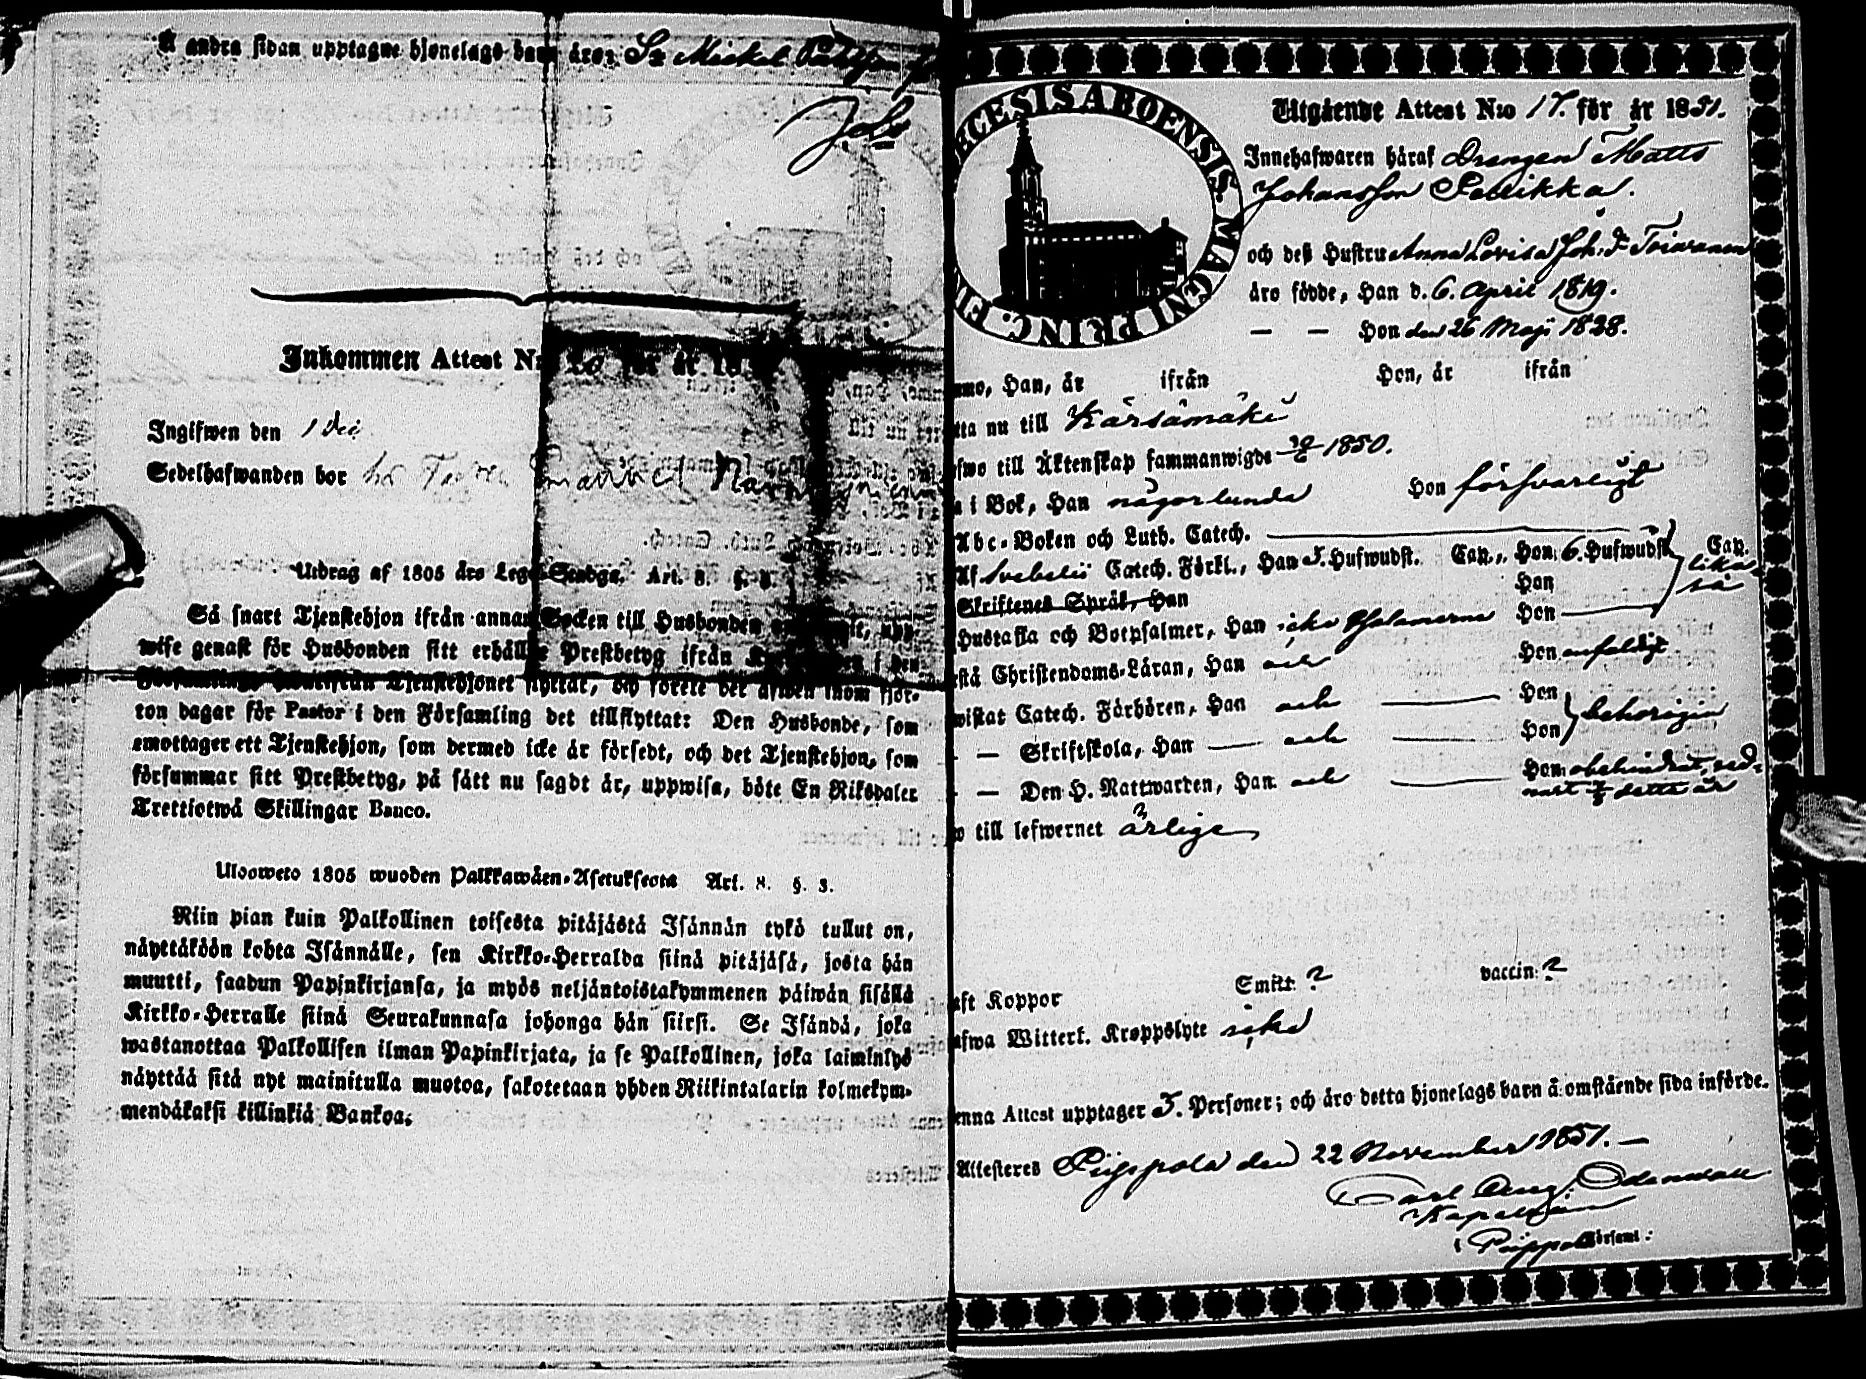 å andra sidan upptagne hjonelags barn äro: Sr Mickel
Joh
Inkommen Attest N:o 20 för år 18
Ingifwen den 1 Dec
Sedelhafwanden bor hos
Utdrag af 1805 års Lego-Stadga. Art. 8. §. 3.
Så snart Tjenstehjon ifrån annan Socken till Husbonden
wise genast för Husbonden sitt erhållne Prestbetyg ifrån i den
Tjenstehjonet flyttat, och förete det äfwen inom fjor-
ton dagar för Pastor i den Församling det tillflyttat: Den Husbonde, som
emottager ett Tjenstehjon, som dermed icke är försedt, och det Tjenstehjon, som
försummar sitt Prestbetyg, på sätt nu sagdt är, uppwisa, böte En Riksdaler
Trettiotwå Skillingar Banco.
Ulosweto 1805 wuoden Palkkawäen-Asetuksesta Art. 8. §. 3.
Niin pian kuin Palkollinen toisesta pitäjästä Isännän tykö tullut on,
näyttäköön kohta Isännälle, sen Kirkko-Herralda siinä pitäjäsä, josta hän
muutti, saadun Papinkirjansa, ja myös neljäntoistakymmenen päiwän sisällä
Kirkko-Herralle siinä Seurakunnasa johonga hän siirsi. Se Isändä, joka
wastanottaa Palkollisen ilman Papinkirjata, ja se Palkollinen, joka laiminlyö
näyttää sitä nyt mainitulla muotoa, sakotetaan yhden Riikintalarin kolmekym-
mendäkaksi killinkiä Bankoa.
ECESIS ABOENSIS. MAGNI PRINC. FI
Utgående Attest N:o 17. för år 1851.
Innehafwaren häraf Drängen Matts
Johansson Sallikka.
och deß Hustru Anna Lovisa Joh: Dr Toivanen
äro födde, Han d. 6. April 1819.
— — Hon den 26 Maji 1828.
mne, Han, år ifrån Hon, år ifrån
tta nu till Kärsämäki
fwo till Äktenskap sammanwigde 1850.
a i Bok, Han någorlunda Hon försvarligt
Abc-Boken och Luth. Catech.
Af Svebelii Catech. Förkl., Han 5. Hufwudst. Cap., Hon 6. Hufwudst. Cap.
likaså
Skriftenes Språk, Han Hon
Hustafla och Botpsalmer, Han icke Psalmerne Hon
stå Christendoms-Läran, Han och Hon enfaldigt
wistat Catech. Förhören, Han och Hon
— Skriftskola, Han och Hon behörigen
— — Den H. Nattwarden, Han och Hon obehindrad, sed-
nast detta år
o till lefwernet ärlige
aft Koppor Smitt: ? vaccin: ?
afwa Witterl. Kroppslyte icke
enna Attest upptager 3. Personer; och äro detta hjonelags barn å omstående sida införde.
Attesteres Piippola den 22 November 1851. —
Carl Aug: Odenwall
Kapellan
i Piippola Församl: